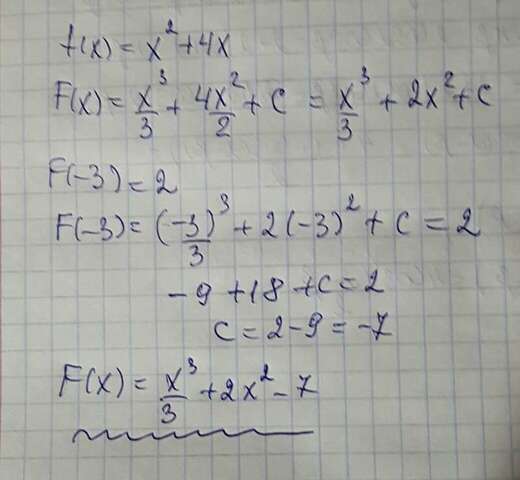 f(x) = x² + 4x
F(x) = x³/3 + 4x²/2 + C = x³/3 + 2x² + C
F(-3) = 2
F(-3) = (-3)³/3 + 2(-3)² + C = 2
-9 + 18 + C = 2
C = 2 - 9 = -7
F(x) = x³/3 + 2x² - 7